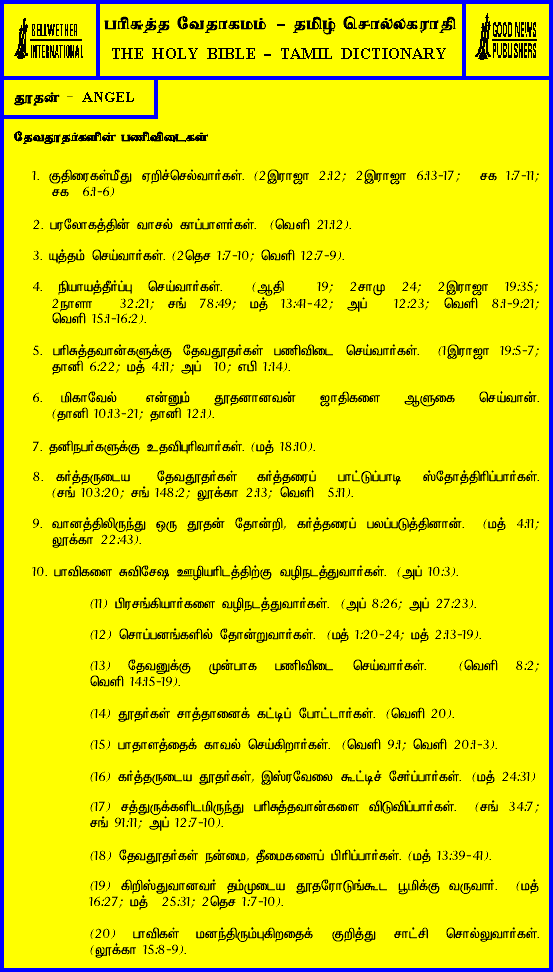 BELLWETHER
INTERNATIONAL
பரிசுத்த வேதாகமம் - தமிழ் சொல்லகராதி
THE HOLY BIBLE - TAMIL DICTIONARY
GOOD NEWS
PUBLISHERS
தூதன் - ANGEL
தேவதூதர்களின் பணிவிடைகள்
1. குதிரைகள்மீது ஏறிச்செல்வார்கள். (2இராஜா 2:12; 2இராஜா 6:13-17; சக 1:7-11;
சக 6:1-6)
2. பரலோகத்தின் வாசல் காப்பாளர்கள். (வெளி 21:12).
3. யுத்தம் செய்வார்கள். (2தெச 1:7-10; வெளி 12:7-9).
4. நியாயத்தீர்ப்பு செய்வார்கள். (ஆதி 19; 2சாமு 24; 2இராஜா 19:35;
2நாளா 32:21; சங் 78:49; மத் 13:41-42; அப் 12:23; வெளி 8:1-9:21;
வெளி 15:1-16:2).
5. பரிசுத்தவான்களுக்கு தேவதூதர்கள் பணிவிடை செய்வார்கள். (1இராஜா 19:5-7;
தானி 6:22; மத் 4:11; அப் 10; எபி 1:14).
6. மிகாவேல் என்னும் தூதனானவன் ஜாதிகளை ஆளுகை செய்வான்.
(தானி 10:13-21; தானி 12:1).
7. தனிநபர்களுக்கு உதவிபுரிவார்கள். (மத் 18:10).
8. கர்த்தருடைய தேவதூதர்கள் கர்த்தரைப் பாட்டுப்பாடி ஸ்தோத்திரிப்பார்கள்.
(சங் 103:20; சங் 148:2; லூக்கா 2:13; வெளி 5:11).
9. வானத்திலிருந்து ஒரு தூதன் தோன்றி, கர்த்தரைப் பலப்படுத்தினான். (மத் 4:11;
லூக்கா 22:43).
10. பாவிகளை சுவிசேஷ ஊழியரிடத்திற்கு வழிநடத்துவார்கள். (அப் 10:3).
(11) பிரசங்கியார்களை வழிநடத்துவார்கள். (அப் 8:26; அப் 27:23).
(12) சொப்பனங்களில் தோன்றுவார்கள். (மத் 1:20-24; மத் 2:13-19).
(13) தேவனுக்கு முன்பாக பணிவிடை செய்வார்கள். (வெளி 8:2;
வெளி 14:15-19).
(14) தூதர்கள் சாத்தானைக் கட்டிப் போட்டார்கள். (வெளி 20).
(15) பாதாளத்தைக் காவல் செய்கிறார்கள். (வெளி 9:1; வெளி 20:1-3).
(16) கர்த்தருடைய தூதர்கள், இஸ்ரவேலை கூட்டிச் சேர்ப்பார்கள். (மத் 24:31)
(17) சத்துருக்களிடமிருந்து பரிசுத்தவான்களை விடுவிப்பார்கள். (சங் 34:7;
சங் 91:11; அப் 12:7-10).
(18) தேவதூதர்கள் நன்மை, தீமைகளைப் பிரிப்பார்கள். (மத் 13:39-41).
(19) கிறிஸ்துவானவர் தம்முடைய தூதரோடுங்கூட பூமிக்கு வருவார். (மத்
16:27; மத் 25:31; 2தெச 1:7-10).
(20) பாவிகள் மனந்திரும்புகிறதைக் குறித்து சாட்சி சொல்லுவார்கள்.
(லூக்கா 15:8-9).